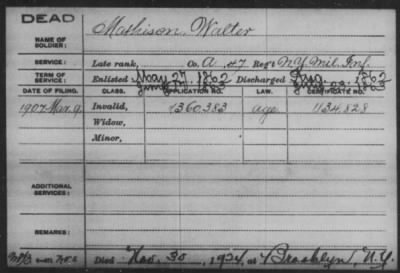 DEAD
NAME OF SOLDIER: Mathison, Walter
SERVICE: Late rank, Co. A, 47 Reg't N.Y. Mil. Inf.
TERM OF SERVICE: Enlisted May 27, 1862 Discharged 1862
1863 1863
DATE OF FILING. CLASS. APPLICATION NO. LAW. CERTIFICATE NO.
1907 Mar. 9. Invalid, 1360,383 age 1134,828
Widow,
Minor,
ADDITIONAL SERVICES:
REMARKS:
Died Nov. 30, 1924 at Brooklyn, N.Y.